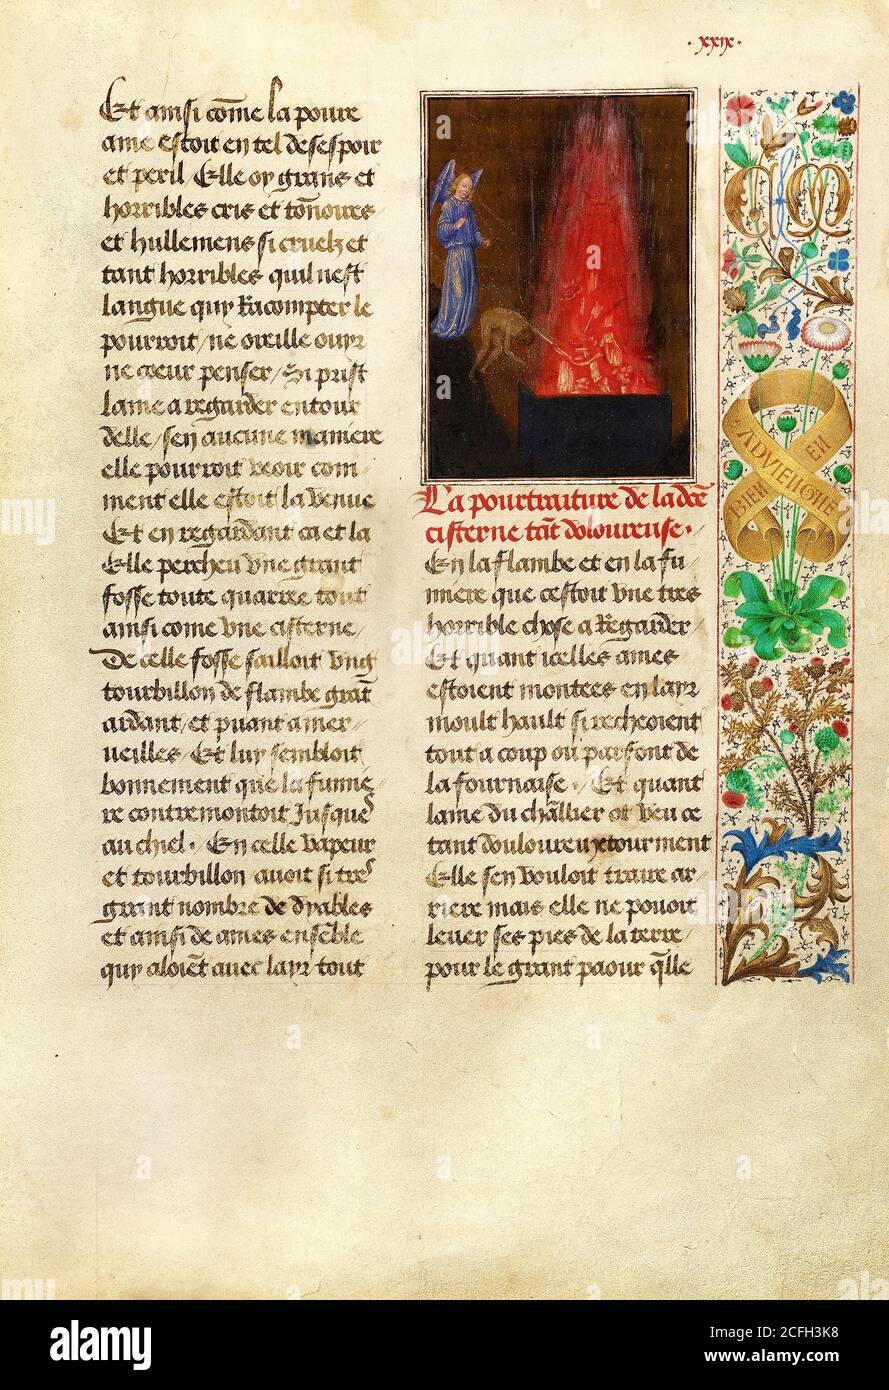 ·xxix·
Et ainsi cōme la poure
ame estoit en tel desespoir
et peril Elle oy grans et
horribles cris et tōnoires
et hullemens si cruelz et
tant horribles quil nest
langue quy Racompter le
pourroit / ne oreille ouyr
ne coeur penser / Si prist
lame a regarder entour
delle / sen aucune maniere
elle pourroit veoir com-
ment elle estoit la venue
Et en regardant ca et la
Elle percheu vne grant
fosse toute quarree tout
ainsi come vne cisterne /
De celle fosse sailloit vng
tourbillon de flambe grāt
ardant / et puant a mer-
veilles / Et luy sembloit
bonnement que la fumee
re contremontoit Jusques
au chiel · En celle vapeur
et tourbillon avoit si tres
grant nombre de dyables
et ainsi de ames ensēble
quy aloiēt avec layr tout
La pourtraiture de la dcē
cisterne tāt doloureuse ·
En la flambe et en la fu-
miere que cestoit vne tres
horrible chose a Regarder
Et quant icelles ames
estoient montees en layr
moult hault si recheoient
tout a coup ou parfont de
la fournaise · Et quant
lame du chlīer ot veu ce
tant douloureux tourment
Elle sen vouloit traire ar-
riere mais elle ne povoit
lever ses pies de la terre
pour le grant paour q̄lle
C M
BIEN EN
ADVIENGNE
alamy
Image ID: 2CFH3K8
www.alamy.com